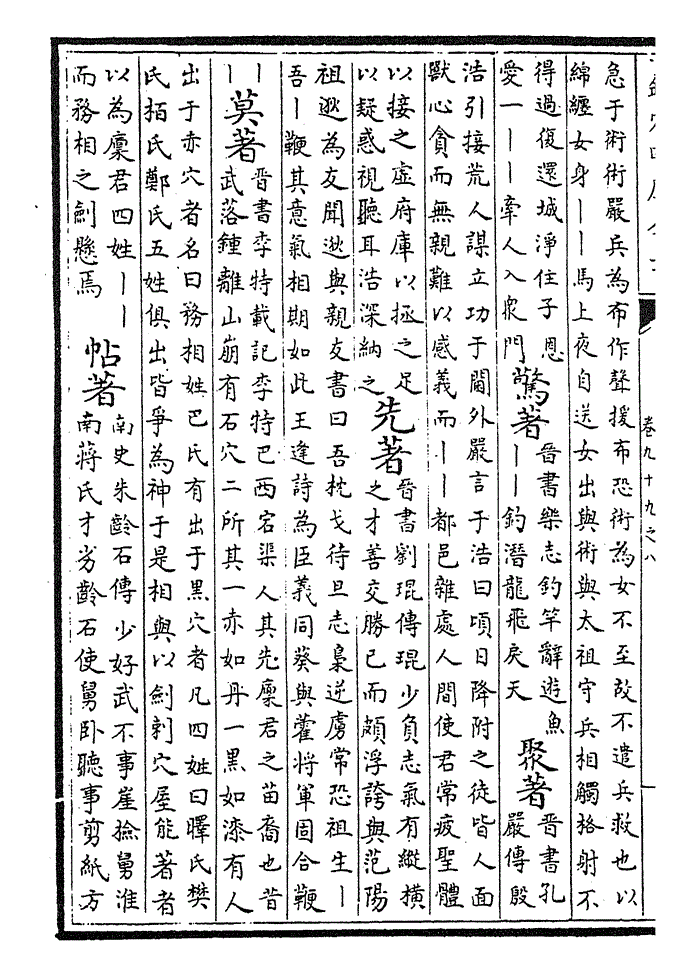 卷九十九之八
急于術術嚴兵為布作聲援布恐術為女不至故不遣兵救也以
綿纏女身――馬上夜自送女出與術與太祖守兵相觸格射不
得過復還城淨住子恩
愛一――牽人入衆門
驚著
晉書樂志釣竿辭遊魚
――釣潛龍飛戾天
聚著
晉書孔
嚴傳殷
浩引接荒人謀立功于閫外嚴言于浩曰頃日降附之徒皆人面
獸心貪而無親難以感義而――都邑雜處人間使君常疲聖體
以接之虛府庫以拯之足
以疑惑視聽耳浩深納之
先著
晉書劉琨傳琨少負志氣有縱橫
之才善交勝己而頗浮誇與范陽
祖逖為友聞逖與親友書曰吾枕戈待旦志梟逆虜常恐祖生―
吾―鞭其意氣相期如此王逢詩為臣義同葵與藿將軍固合鞭
―
―
莫著
晉書李特載記李特巴西宕渠人其先廩君之苗裔也昔
武落鍾離山崩有石穴二所其一赤如丹一黑如漆有人
出于赤穴者名曰務相姓巴氏有出于黑穴者凡四姓曰曎氏樊
氏柏氏鄭氏五姓俱出皆爭為神于是相與以劍刺穴屋能著者
以為廩君四姓――
而務相之劍懸焉
帖著
南史朱齡石傳少好武不事崖撿舅淮
南蔣氏才劣齡石使舅卧聽事剪紙方